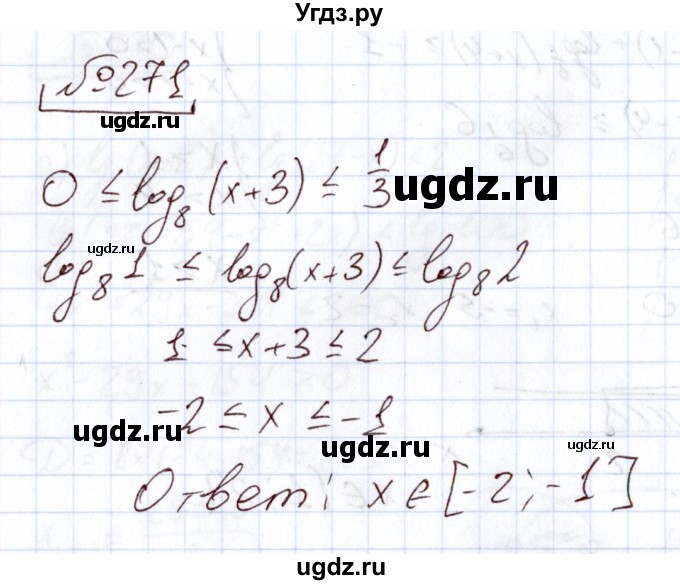 Угдз.ру
№271
ugdz.ru
0 ≤ log₈(x+3) ≤ 1/3
ugdz.ru
ugdz.ru
log₈1 ≤ log₈(x+3) ≤ log₈2
1 ≤ x+3 ≤ 2
-2 ≤ x ≤ -1
ugdz.ru
ugdz.ru
ugdz.ru
Ответ: x ∈ [-2; -1]
ugdz.ru